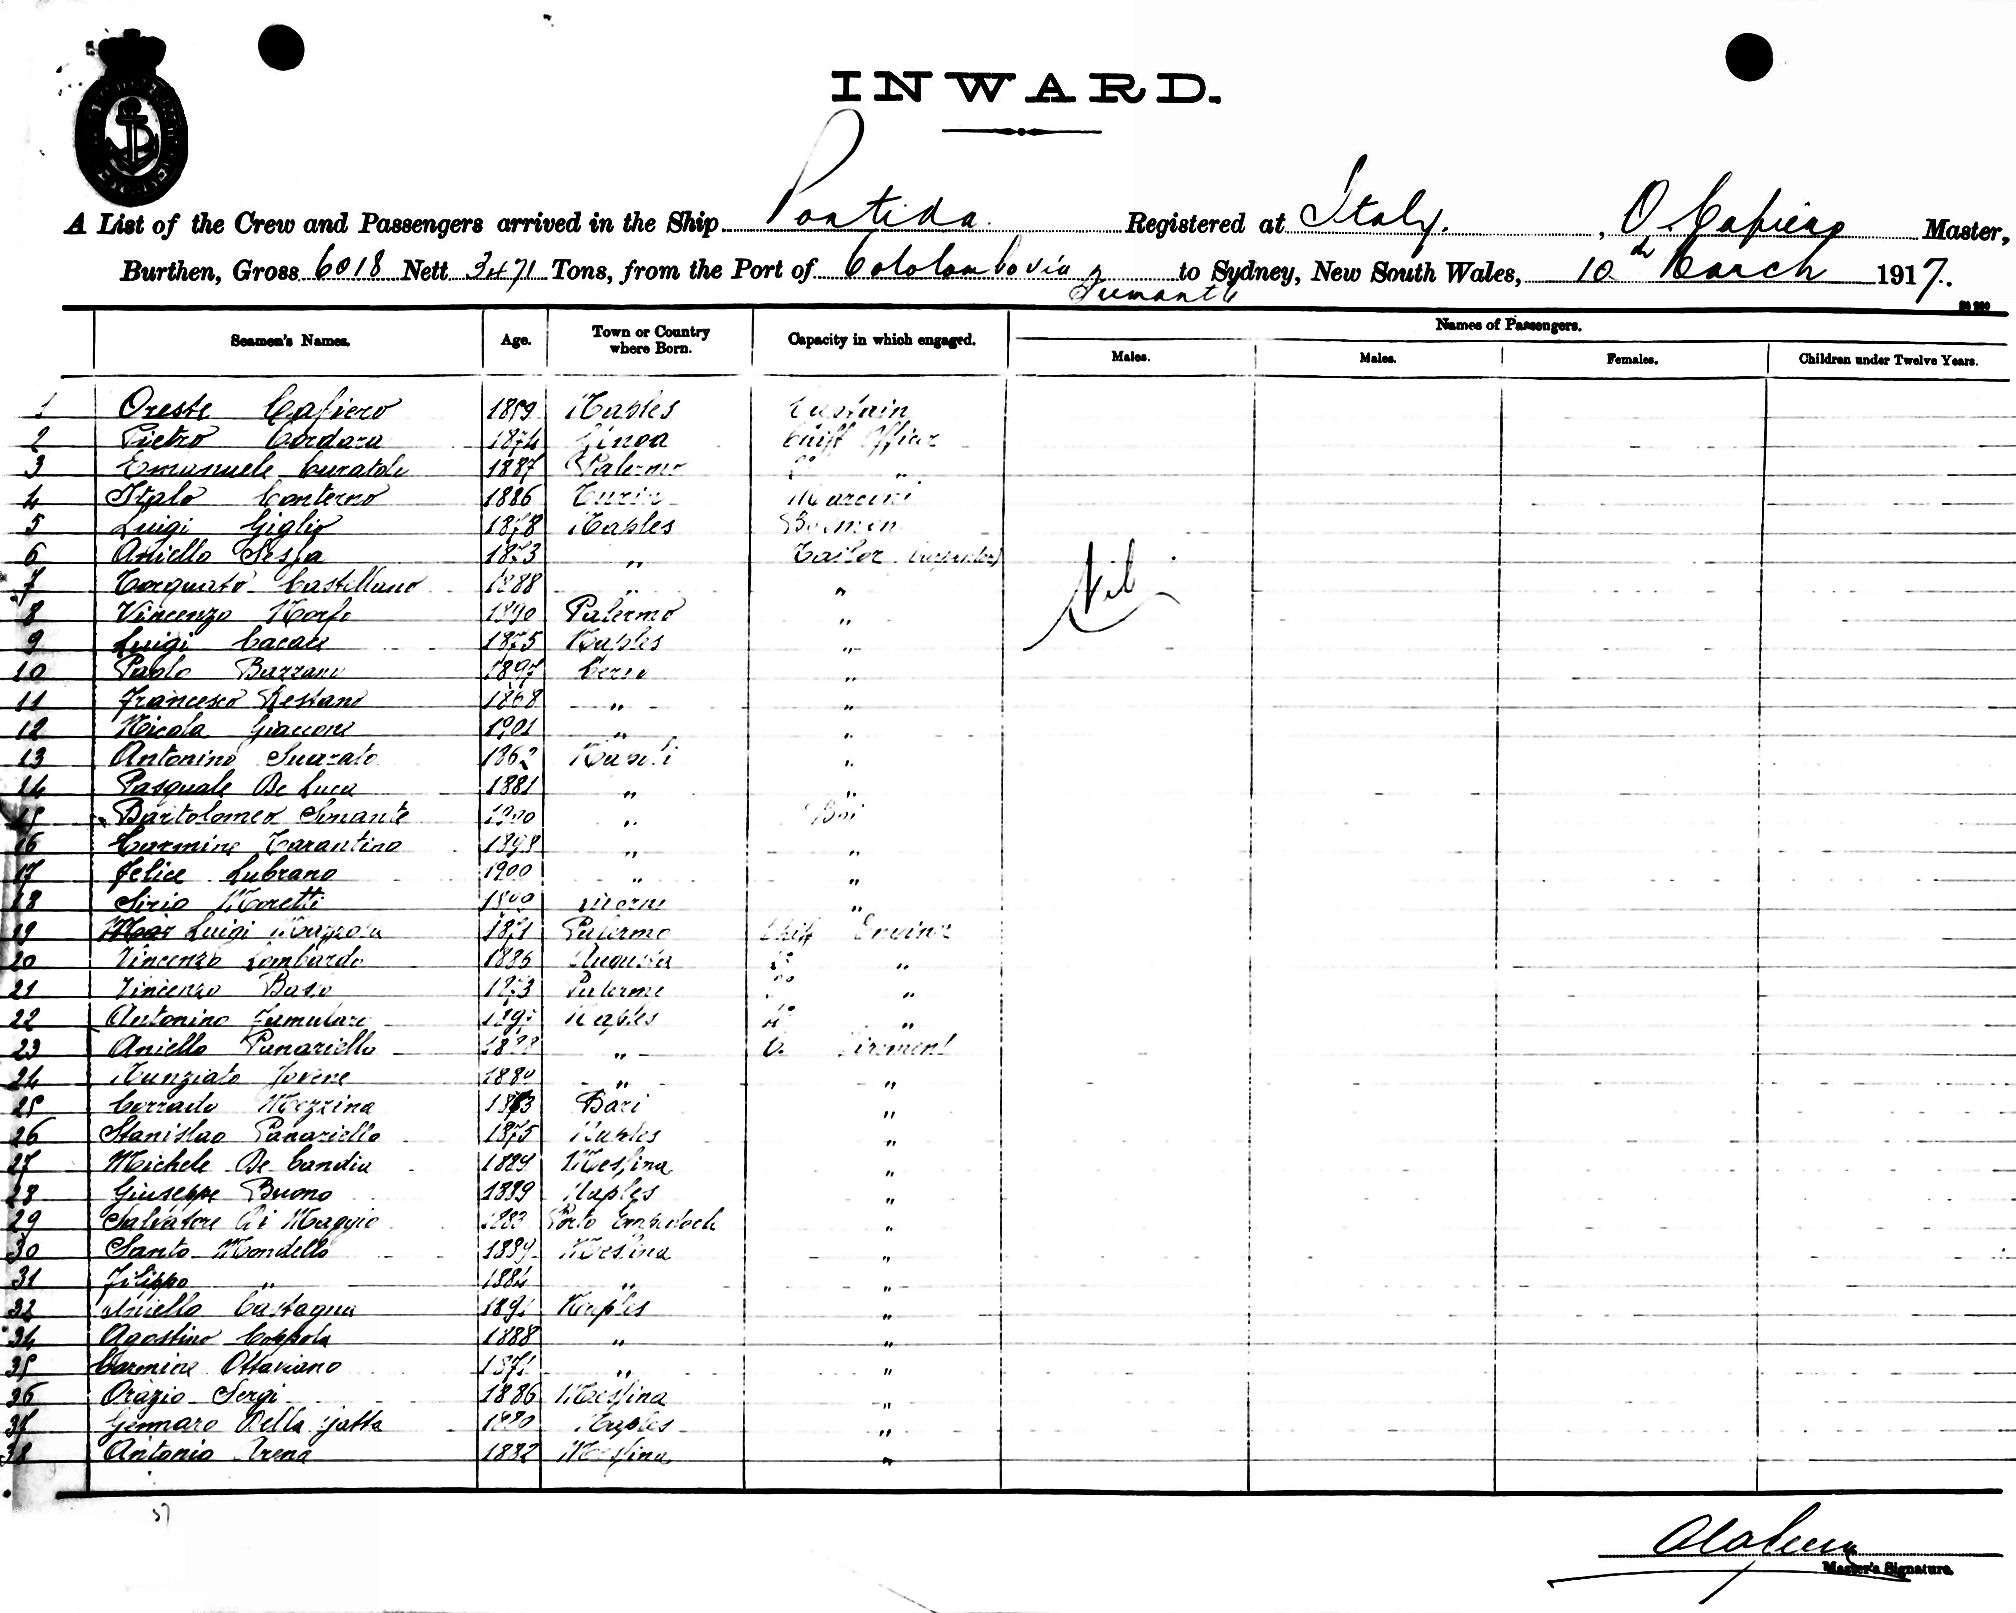 INWARD.
A List of the Crew and Passengers arrived in the Ship Pontida. Registered at Italy. , O. Cafiero Master,
Burthen, Gross 6018 Nett 3471 Tons, from the Port of via to Sydney, New South Wales, 10th March 1917.
Seamen's Names. Age. Town or Country where Born. Capacity in which engaged. Names of Passengers.
Males. Males. Females. Children under Twelve Years.
1 Oreste Cafiero 1859 Naples Captain
2 Pietro Cordara 1874 Genoa Chiff Officer
3 Emanuele Curatolo 1887 Palermo 2° "
4 Italo Conterno 1886 Turin Marconi
5 Luigi Giglio 1878 Naples
6 Aniello Sessa 1873 " Sailor (Carpenter)
Nil
7 Torquato Castellano 1888 " "
8 Vincenzo 1890 Palermo "
9 Luigi Cacace 1875 Naples "
10 Paolo Bazzano 1897 "
11 Francesco 1868 " "
12 Nicola Giaccone 1901 " "
13 Antonino 1862 Napoli "
14 Pasquale De Luca 1881 " "
15 Bartolomeo 1900 " Boi
16 Carmine Tarantino 1898 " "
17 Felice Lubrano 1900 " "
18 Sirio Moretti 1900 "
19 Luigi Mazzola 1871 Palermo Chiff
20 Vincenzo Lombardo 1886 Augusta 2° "
21 Vincenzo 1873 Palermo "
22 Antonino Famulari Naples "
23 Aniello Panariello " Firement
24 Nunziato Iovene 1880 " "
25 Corrado Mezzina Bari "
26 Stanislao Panariello 1875 Naples "
27 Michele De Candia 1889 Messina "
28 Giuseppe Buono 1889 Naples "
29 Salvatore Di Maggio 1883 Porto "
30 Santo Mondello 1889 Messina "
31 Filippo " 1884 " "
32 Aniello Castagna Naples "
34 Agostino Coppola 1888 " "
35 Carmine Ottaviano 1871 " "
36 Orazio Sergi 1886 Messina "
37 Gennaro Della Gatta 1880 Naples "
38 Antonio Arena 1882 Messina "
37
Master's Signature.